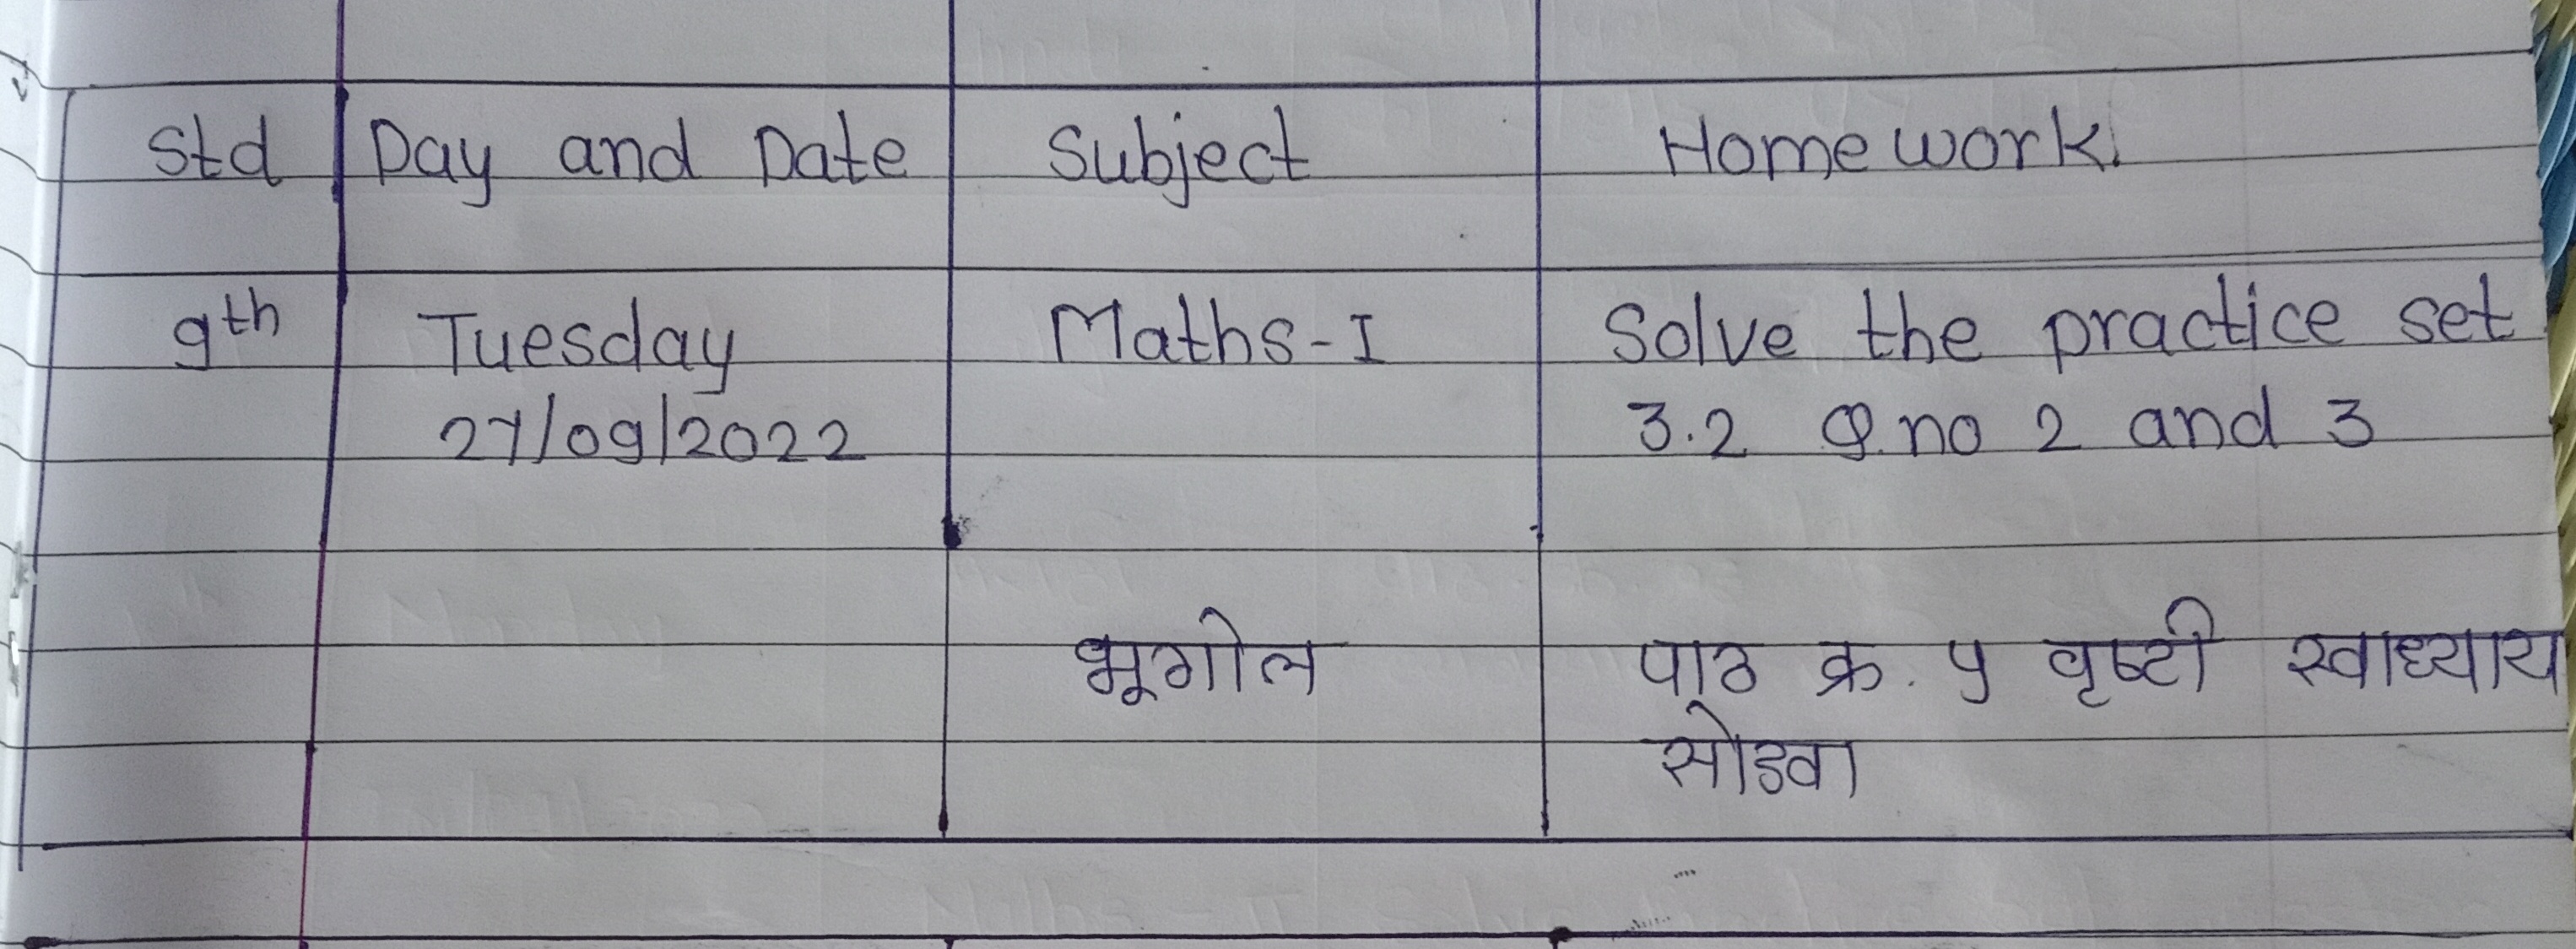 Std Day and Date Subject Homework.
9th Tuesday Maths-I Solve the practice set
27/09/2022 3.2 Q.no 2 and 3
भूगोल पाठ क्र. ५ वृष्टी स्वाध्याय
सोडवा